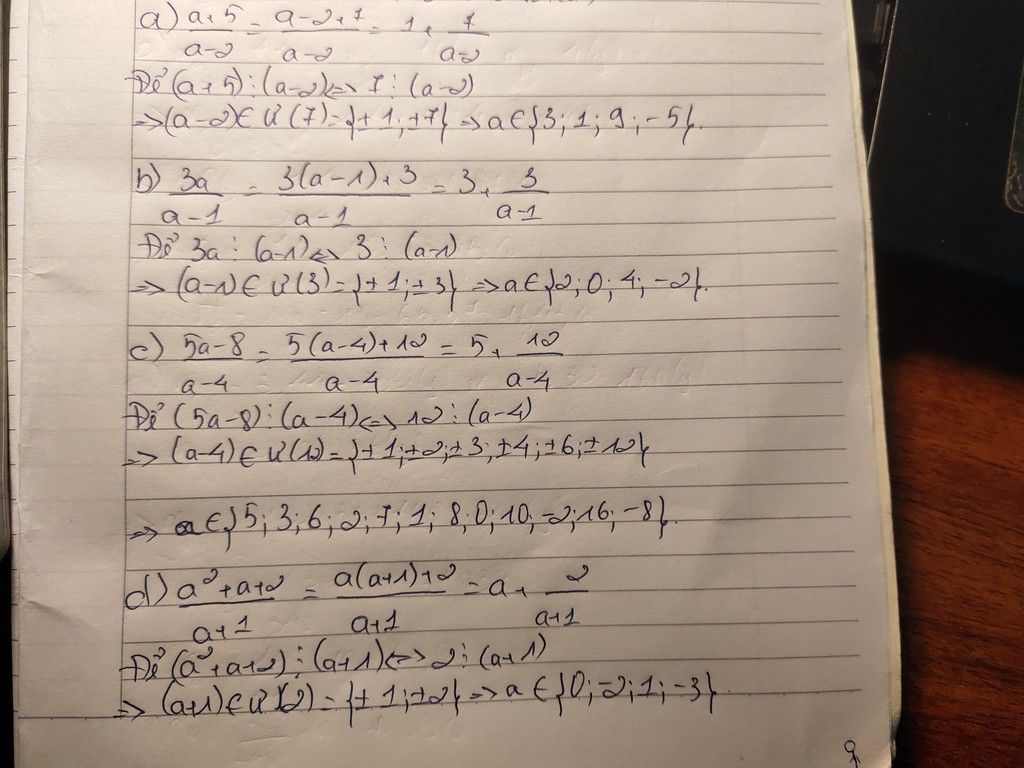 a) (a+5)/(a-2) = (a-2+7)/(a-2) = 1 + 7/(a-2)
Để (a+5) ⋮ (a-2) <=> 7 ⋮ (a-2)
=> (a-2) ∈ Ư(7) = {±1; ±7} => a ∈ {3; 1; 9; -5}.
b) 3a/(a-1) = (3(a-1)+3)/(a-1) = 3 + 3/(a-1)
Để 3a ⋮ (a-1) <=> 3 ⋮ (a-1)
=> (a-1) ∈ Ư(3) = {±1; ±3} => a ∈ {2; 0; 4; -2}.
c) (5a-8)/(a-4) = (5(a-4)+12)/(a-4) = 5 + 12/(a-4)
Để (5a-8) ⋮ (a-4) <=> 12 ⋮ (a-4)
=> (a-4) ∈ Ư(12) = {±1; ±2; ±3; ±4; ±6; ±12}
=> a ∈ {5; 3; 6; 2; 7; 1; 8; 0; 10; -2; 16; -8}.
d) (a²+a+2)/(a+1) = (a(a+1)+2)/(a+1) = a + 2/(a+1)
Để (a²+a+2) ⋮ (a+1) <=> 2 ⋮ (a+1)
=> (a+1) ∈ Ư(2) = {±1; ±2} => a ∈ {0; -2; 1; -3}.